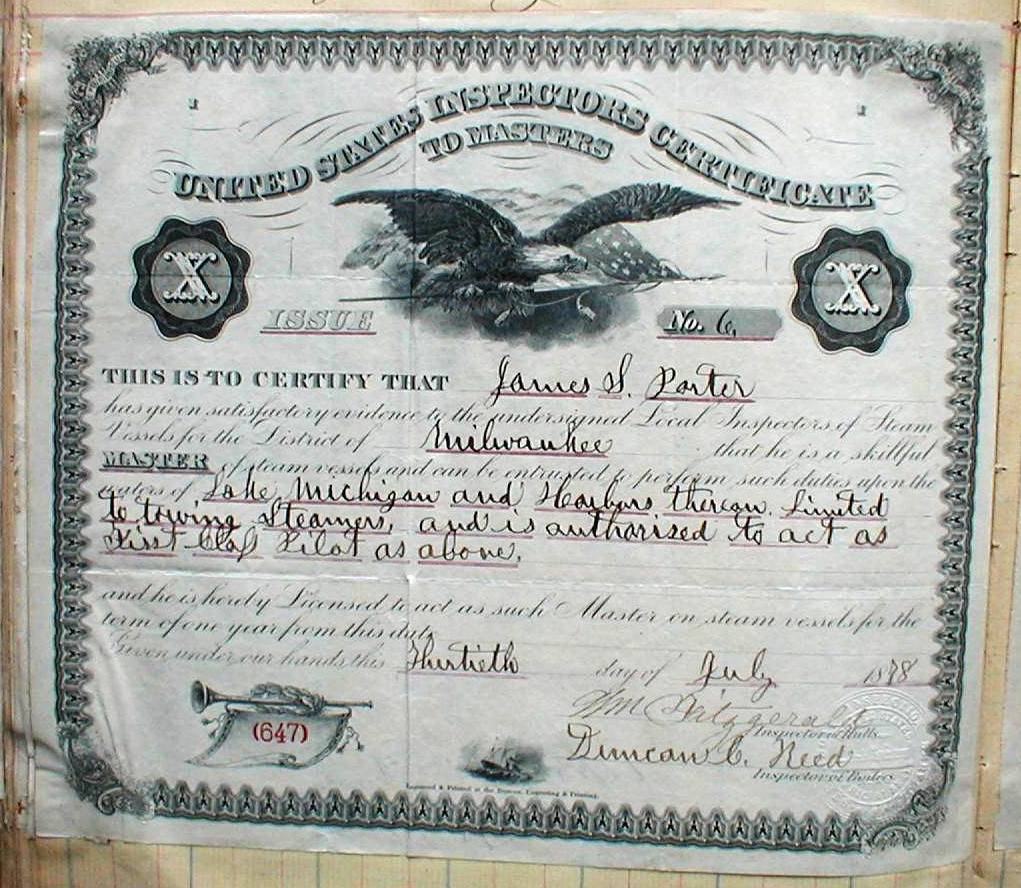 1 1
UNITED STATES INSPECTORS CERTIFICATE
TO MASTERS
X X
ISSUE No. 6,
THIS IS TO CERTIFY THAT James S. Porter
has given satisfactory evidence to the undersigned Local Inspectors of Steam
Vessels for the District of Milwaukee that he is a skillful
MASTER of steam vessels and can be entrusted to perform such duties upon the
waters of Lake Michigan and Harbors thereon. Limited
to towing Steamers, and is authorized to act as
First Class Pilot as above.
and he is hereby Licensed to act as such Master on steam vessels for the
term of one year from this date
Given under our hands this Thirtieth day of July 1878
Wm Fitzgerald
Inspector of Hulls
(647)
Duncan C. Reed
Inspector of Boilers
Engraved & Printed at the Bureau, Engraving & Printing.